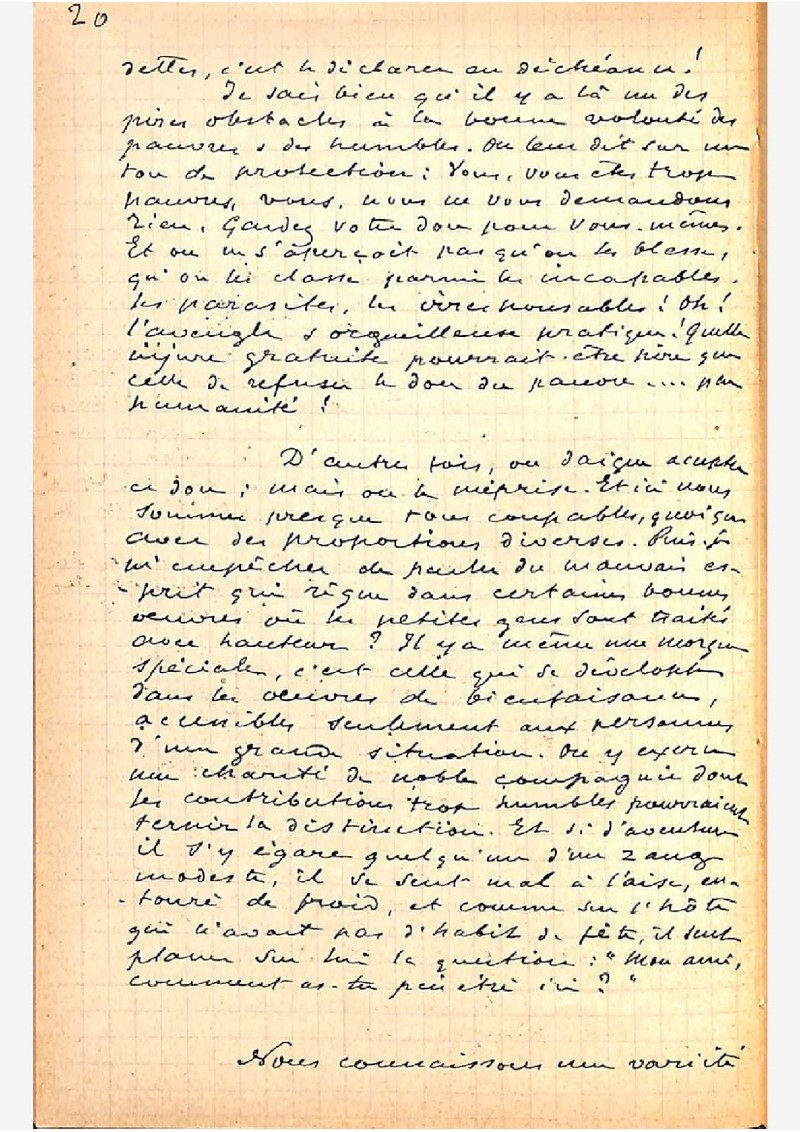 20
dettes, c'est le déclarer en déchéance !
Je sais bien qu'il y a là un des
pires obstacles à la bonne volonté des
pauvres & des humbles. On leur dit sur un
ton de protection : Vous, vous êtes trop
pauvres, vous, nous ne vous demandons
rien. Gardez votre don pour vous-mêmes.
Et on ne s'aperçoit pas qu'on les blesse,
qu'on les classe parmi les incapables,
les parasites, les irresponsables ! Oh !
l'aveugle & orgueilleuse pratique ! Quelle
injure gratuite pourrait-être pire que
celle de refuser le don du pauvre .... par
humanité !
D'autres fois, on daigne accepter
ce don ; mais on le méprise. Et ici nous
sommes presque tous coupables, quoique
avec des proportions diverses. Puis-je
m'empêcher de parler du mauvais es-
prit qui règne dans certaines bonnes
oeuvres où les petites gens sont traités
avec hauteur ? Il y a même une morgue
spéciale, c'est celle qui se développe
dans les oeuvres de bienfaisance,
accessibles seulement aux personnes
d'une grande situation. On y exerce
une charité de noble compagnie dont
les contributions trop humbles pourraient
ternir la distinction. Et si d'aventure
il s'y égare quelqu'un d'un rang
modeste, il se sent mal à l'aise, en-
touré de froid, et comme sur l'hôte
qui n'avait pas d'habit de fête, il sent
planer sur lui la question : "Mon ami,
comment as-tu pénétré ici ?"
Nous connaissons une variété